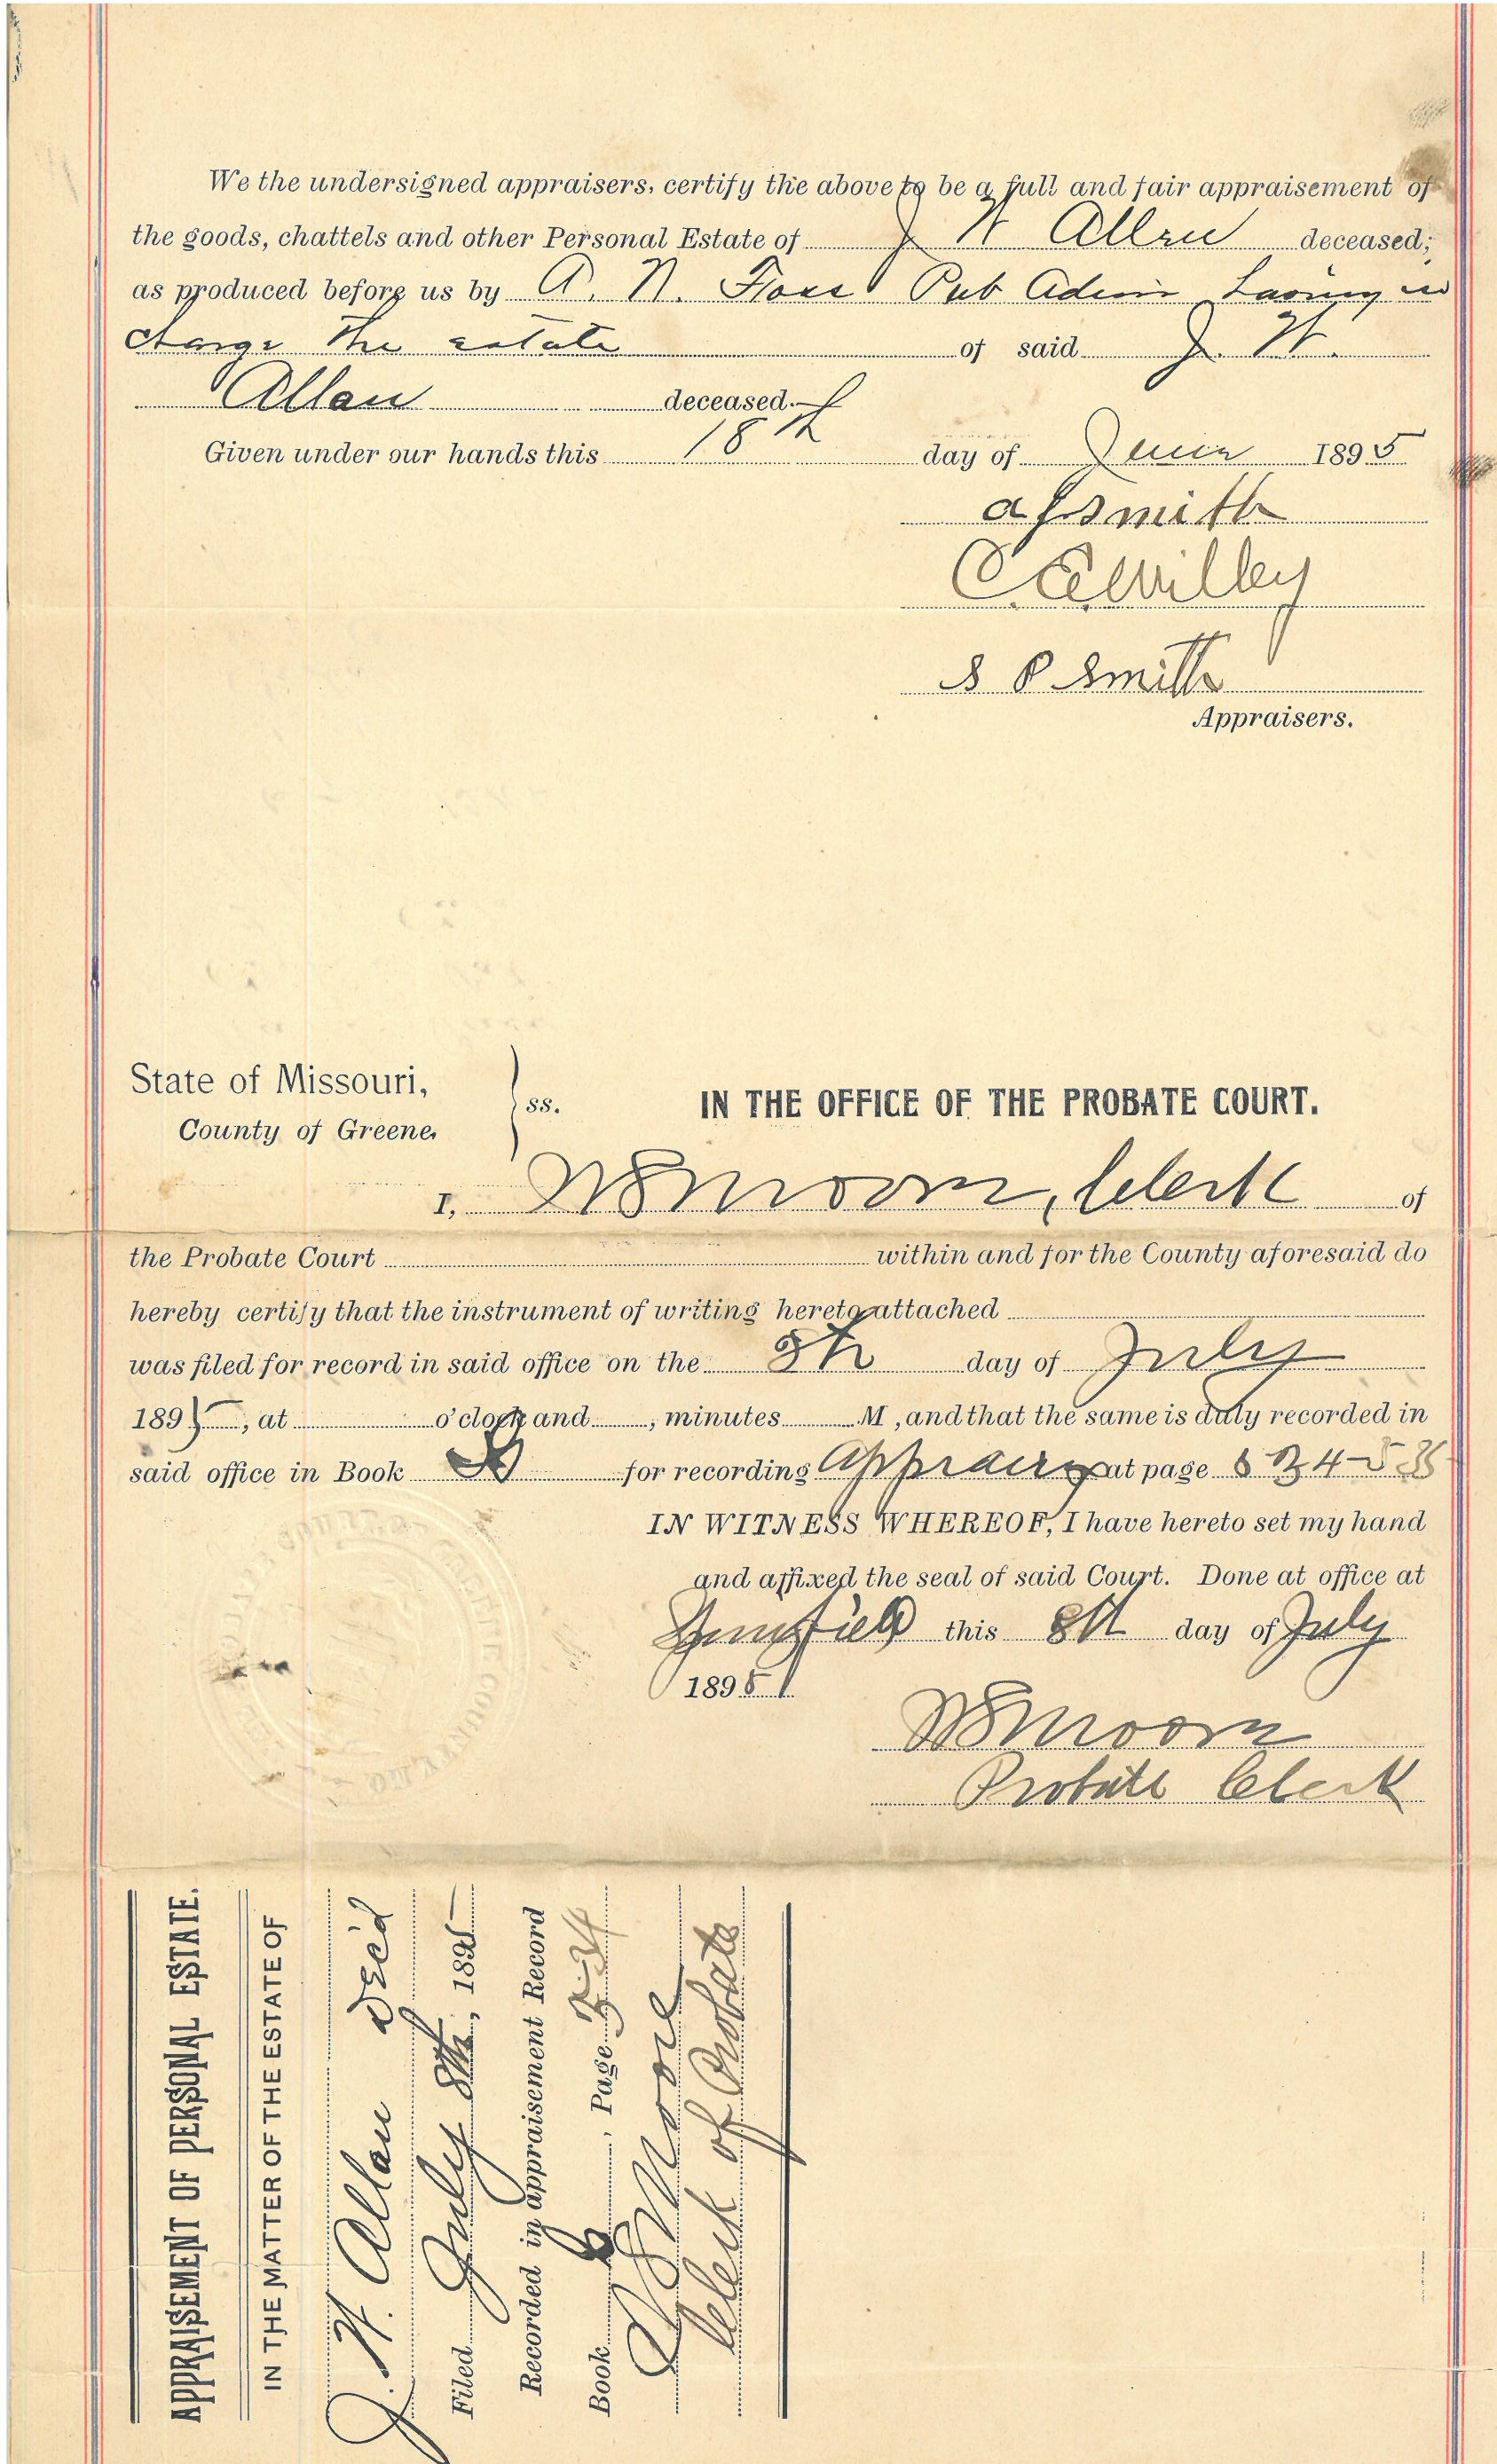 We the undersigned appraisers, certify the above to be a full and fair appraisement of
the goods, chattels and other Personal Estate of J H Allen deceased;
as produced before us by A. N. Pub Admin having in
charge the estate of said J. H.
Allan deceased.
Given under our hands this 18th day of June 1895
Smith
C E Willey
S P Smith
Appraisers.
State of Missouri,
County of Greene,
ss.
IN THE OFFICE OF THE PROBATE COURT.
I, Moore, Clerk of
the Probate Court within and for the County aforesaid do
hereby certify that the instrument of writing hereto attached
was filed for record in said office on the 8th day of July
1895, at o'clock and , minutes M , and that the same is duly recorded in
said office in Book for recording at page
IN WITNESS WHEREOF, I have hereto set my hand
and affixed the seal of said Court. Done at office at
this 8th day of July
1895
Moore
Probate Clerk
APPRAISEMENT OF PERSONAL ESTATE.
IN THE MATTER OF THE ESTATE OF
J. H. Allan Dec'd
Filed July 8th, 1895
Recorded in appraisement Record
Book , Page 534
Moore
Clerk of Probate